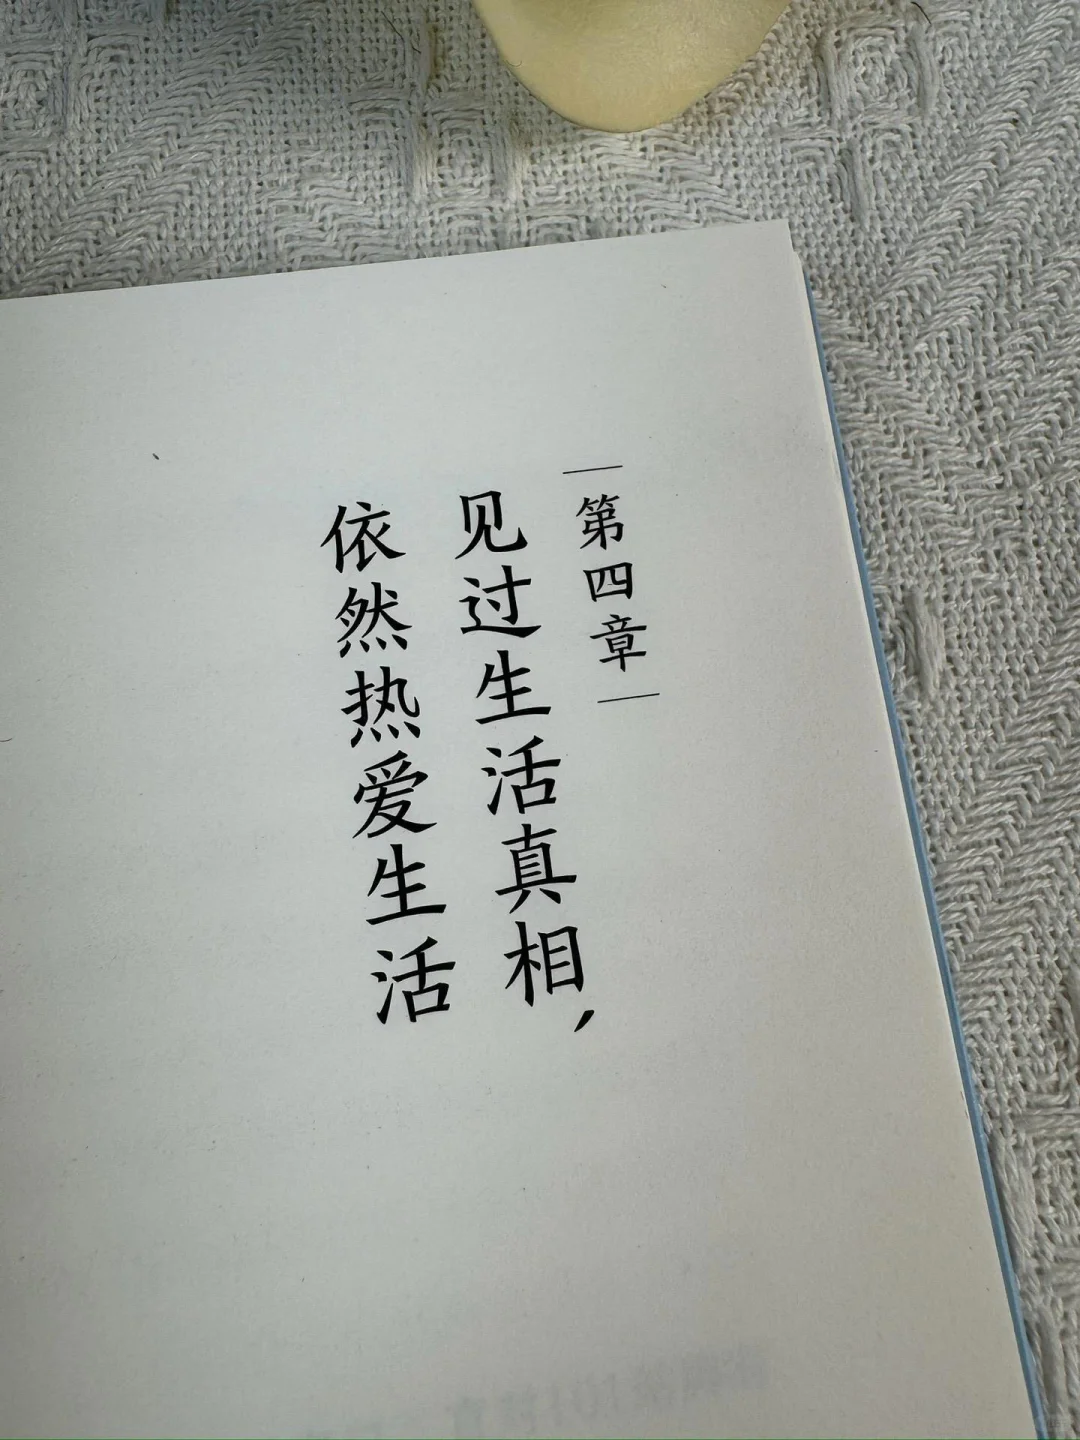 第四章
见过生活真相，
依然热爱生活